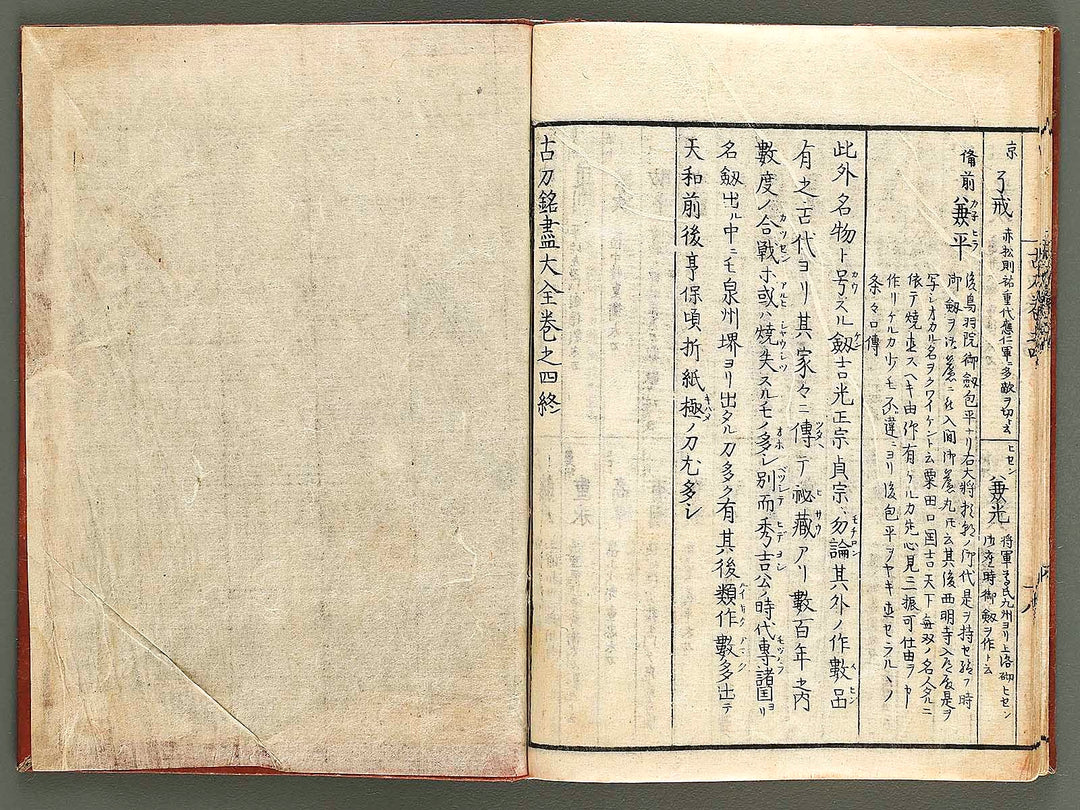 京 了戒 赤松則祐重代應仁軍ニ多敵ヲ切ト云
ヒゼン 兼光 将軍尊氏九州ヨリ上洛砌ヒセン
御座時御劔ヲ作ト云
備前 兼平 後鳥羽院御劔包平ナリ右大将頼朝ノ御代是ヲ持セ給フ時
御劔ヲ
其後西明寺入道殿是ヲ
写シオカル名ヲクワイケント云粟田口国吉天下無双ノ名人タルニ
依テ焼直スヘキ由作有ケルカ先心見ニ三振可仕由ヲヤ
作リケルカ少モ不違ニヨリ後包平ヲヤキ直セラルヽノ
条々口傳
此外名物ト号スル劔吉光正宗貞宗ハ勿論其外ノ作數品
有之古代ヨリ其家々ニ傳テ祕藏アリ數百年之内
數度ノ合戰ホ或ハ燒失スルモノ多シ別而秀吉公ノ時代專諸国ヨリ
名劔出ル中ニモ泉州堺ヨリ出タル刀多ク有其後類作數多出テ
天和前後亨保頃折紙極ノ刀尤多シ
古刀銘盡大全巻之四終